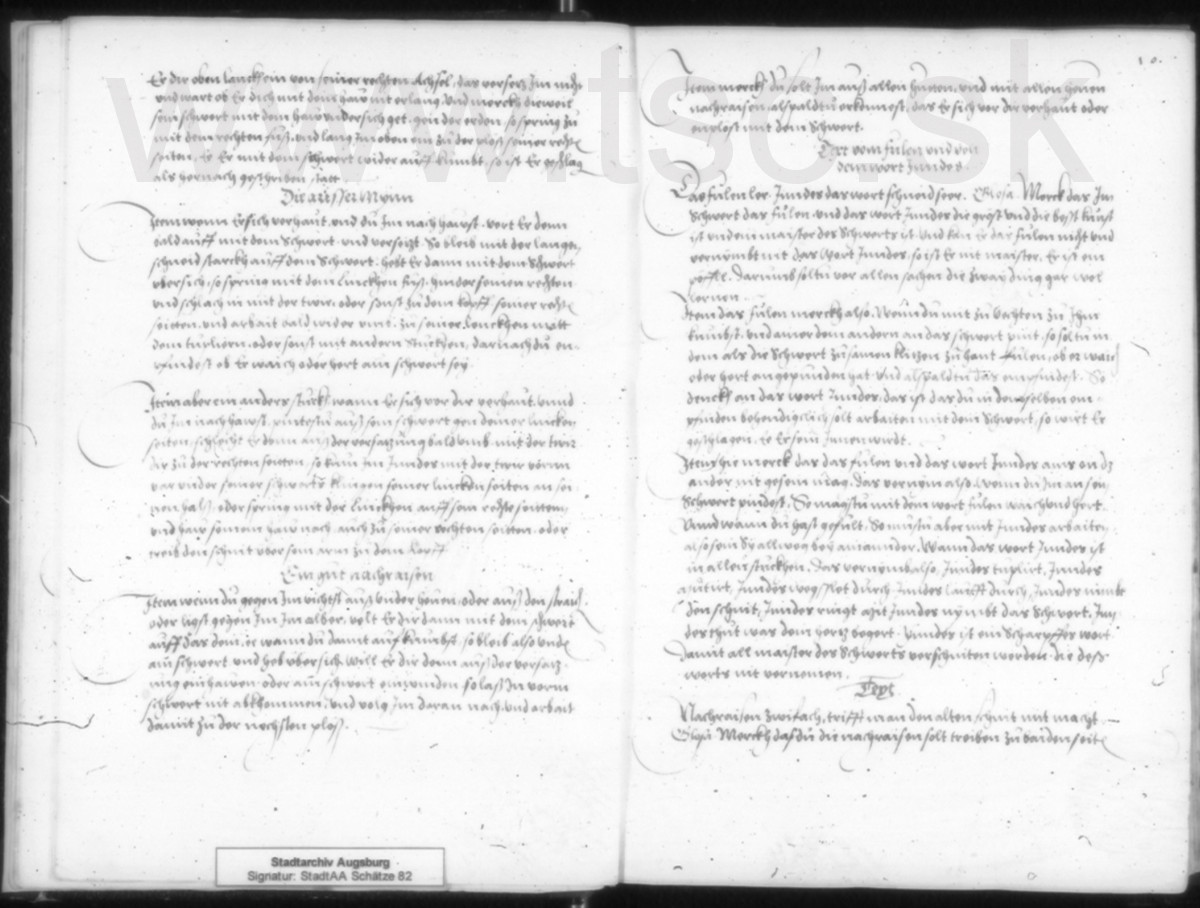 Er dir oben lanckh ein von seiner rechten Achsel, das versetz Im nicht
vnd wart ob Er dich mit dem haw mit erlang, vnd merckh dieweil
sein schwert mit dem haw vndersich get, gen der erden, so spring zu
mit dem rechten fuß, vnd lang Im oben ein zu der plöß seiner rechten
seiten, ee Er mit dem schwert wider auff kumbt, so ist Er geschlagen
als hernach geschriben statt
Die ausser Mynn
Item wenn Er sich verhaut, vnd du Im nach hawst, vert Er dann
bald auff mit dem Schwert, vnd versetzt, So bleib mit der langen
schneid starckh auff dem Schwert, hebt Er dann mit dem Schwert
vbersich, so spring mit dem linckhen fuß, hinder seinen rechten
vnd schlach in mit der twir, oder sonst zu dem kopff, seiner rechten
seitten, vnd arbait bald wider vmb, zu seiner Linckhen mitt
dem duplieren, oder sonst mit andern stuckhen, darnach du em-
pfindest ob Er waich oder hert am schwert sey
Item aber ein anders stuckh, wann Er sich vor dir verhaut, vnnd
du Im nach hawst, pindestu auff sein schwert gen deiner lincken
seiten, schlecht Er dann auß der versatzung bald vmb mit der twir
dir zu der rechten seitten, so kum Im Inndes mit der twir vornn
var vnder seiner schwerts klingen seiner linckhen seiten an sei-
nen halß, oder spring mit der linckhen auff sein rechte seitten
vnd haw seinem haw nach auch zu seiner rechten seitten, oder
treib den schnit vber sein arm zu dem kopff
Ein gut nachraisen
Item wenn du gegen Im vichtst auß vnder hewen, oder auß den straich
oder ligst gegen Im Im alber, velt Er dir dann mit dem schwert
auff das dein, ee wann du damit auff kumbst, so bleib also vnden
am schwert vnd heb vbersich, will er dir dann auß der versatz-
ung einhawen, oder am schwert einwinden, so laß In vorm
schwert nit abkommen, vnd volg Im daran nach, vnd arbait
damit zu der nechsten plöß
10.
Item merckh du solt Im auß allen hutten, vnd mit allen hewen
nachraisen, alspald tu erkennest, das Er sich vor dir verhawt oder
emplöst mit dem Schwert.
Text vom fülen vnd von
dem wort Inndes
Das fulen ler, Inndes das wort schneid seer. Glosa. Merck das Im
schwert das fulen, vnd das wort Inndes die gröst vnd die best kunst
ist
Lernen
Item das fulen merckh also, Wenn du mit zu vechten zu Ihm
kumbst, vnd ainer dem andern an das schwert pint, so soltu in
dem als die Schwert zusamen klitzen zuhant fulen, ob er waich
oder hert angepunden hat, vnd alspald tu das empfindest, So
denckh an das wort Inndes, das ist das du in demselben em-
pfinden behendigclich solt arbaiten mit dem Schwert, so wirt Er
geschlagen, ee Er sein Innen wirdt.
Item hie merck das das fulen vnd das wort Inndes ains on das
ander nit gesein mag, das vernym also, wenn du Im an sein
Schwert pindest, So mustu mit dem wort fulen waich vnd hert
Vnd wann du hast gefült, So mustu aber mit Inndes arbaiten
also sein Sy allweg bey ainander, Wann das wort Inndes ist
in allen stuckhen, Das vernymb also, Inndes duplirt, Inndes
mutirt, Inndes wegslet durch, Inndes laufft durch, Inndes nimbt
den schnit, Inndes ringt mit, Inndes nymbt das Schwert, Inn-
des thut was dein hertz begert, Inndes ist ein scharpffes wort
damit all maister des Schwerts verschniten werden, die deß
worts nit vernemen.
Text
Nachraisen zwifach, trifft man den alten schnit mit macht
Glosa Merckh das du die nachraisen solt treiben zu baiden seiten
www.tsc.sk
Stadtarchiv Augsburg
Signatur: StadtAA Schätze 82